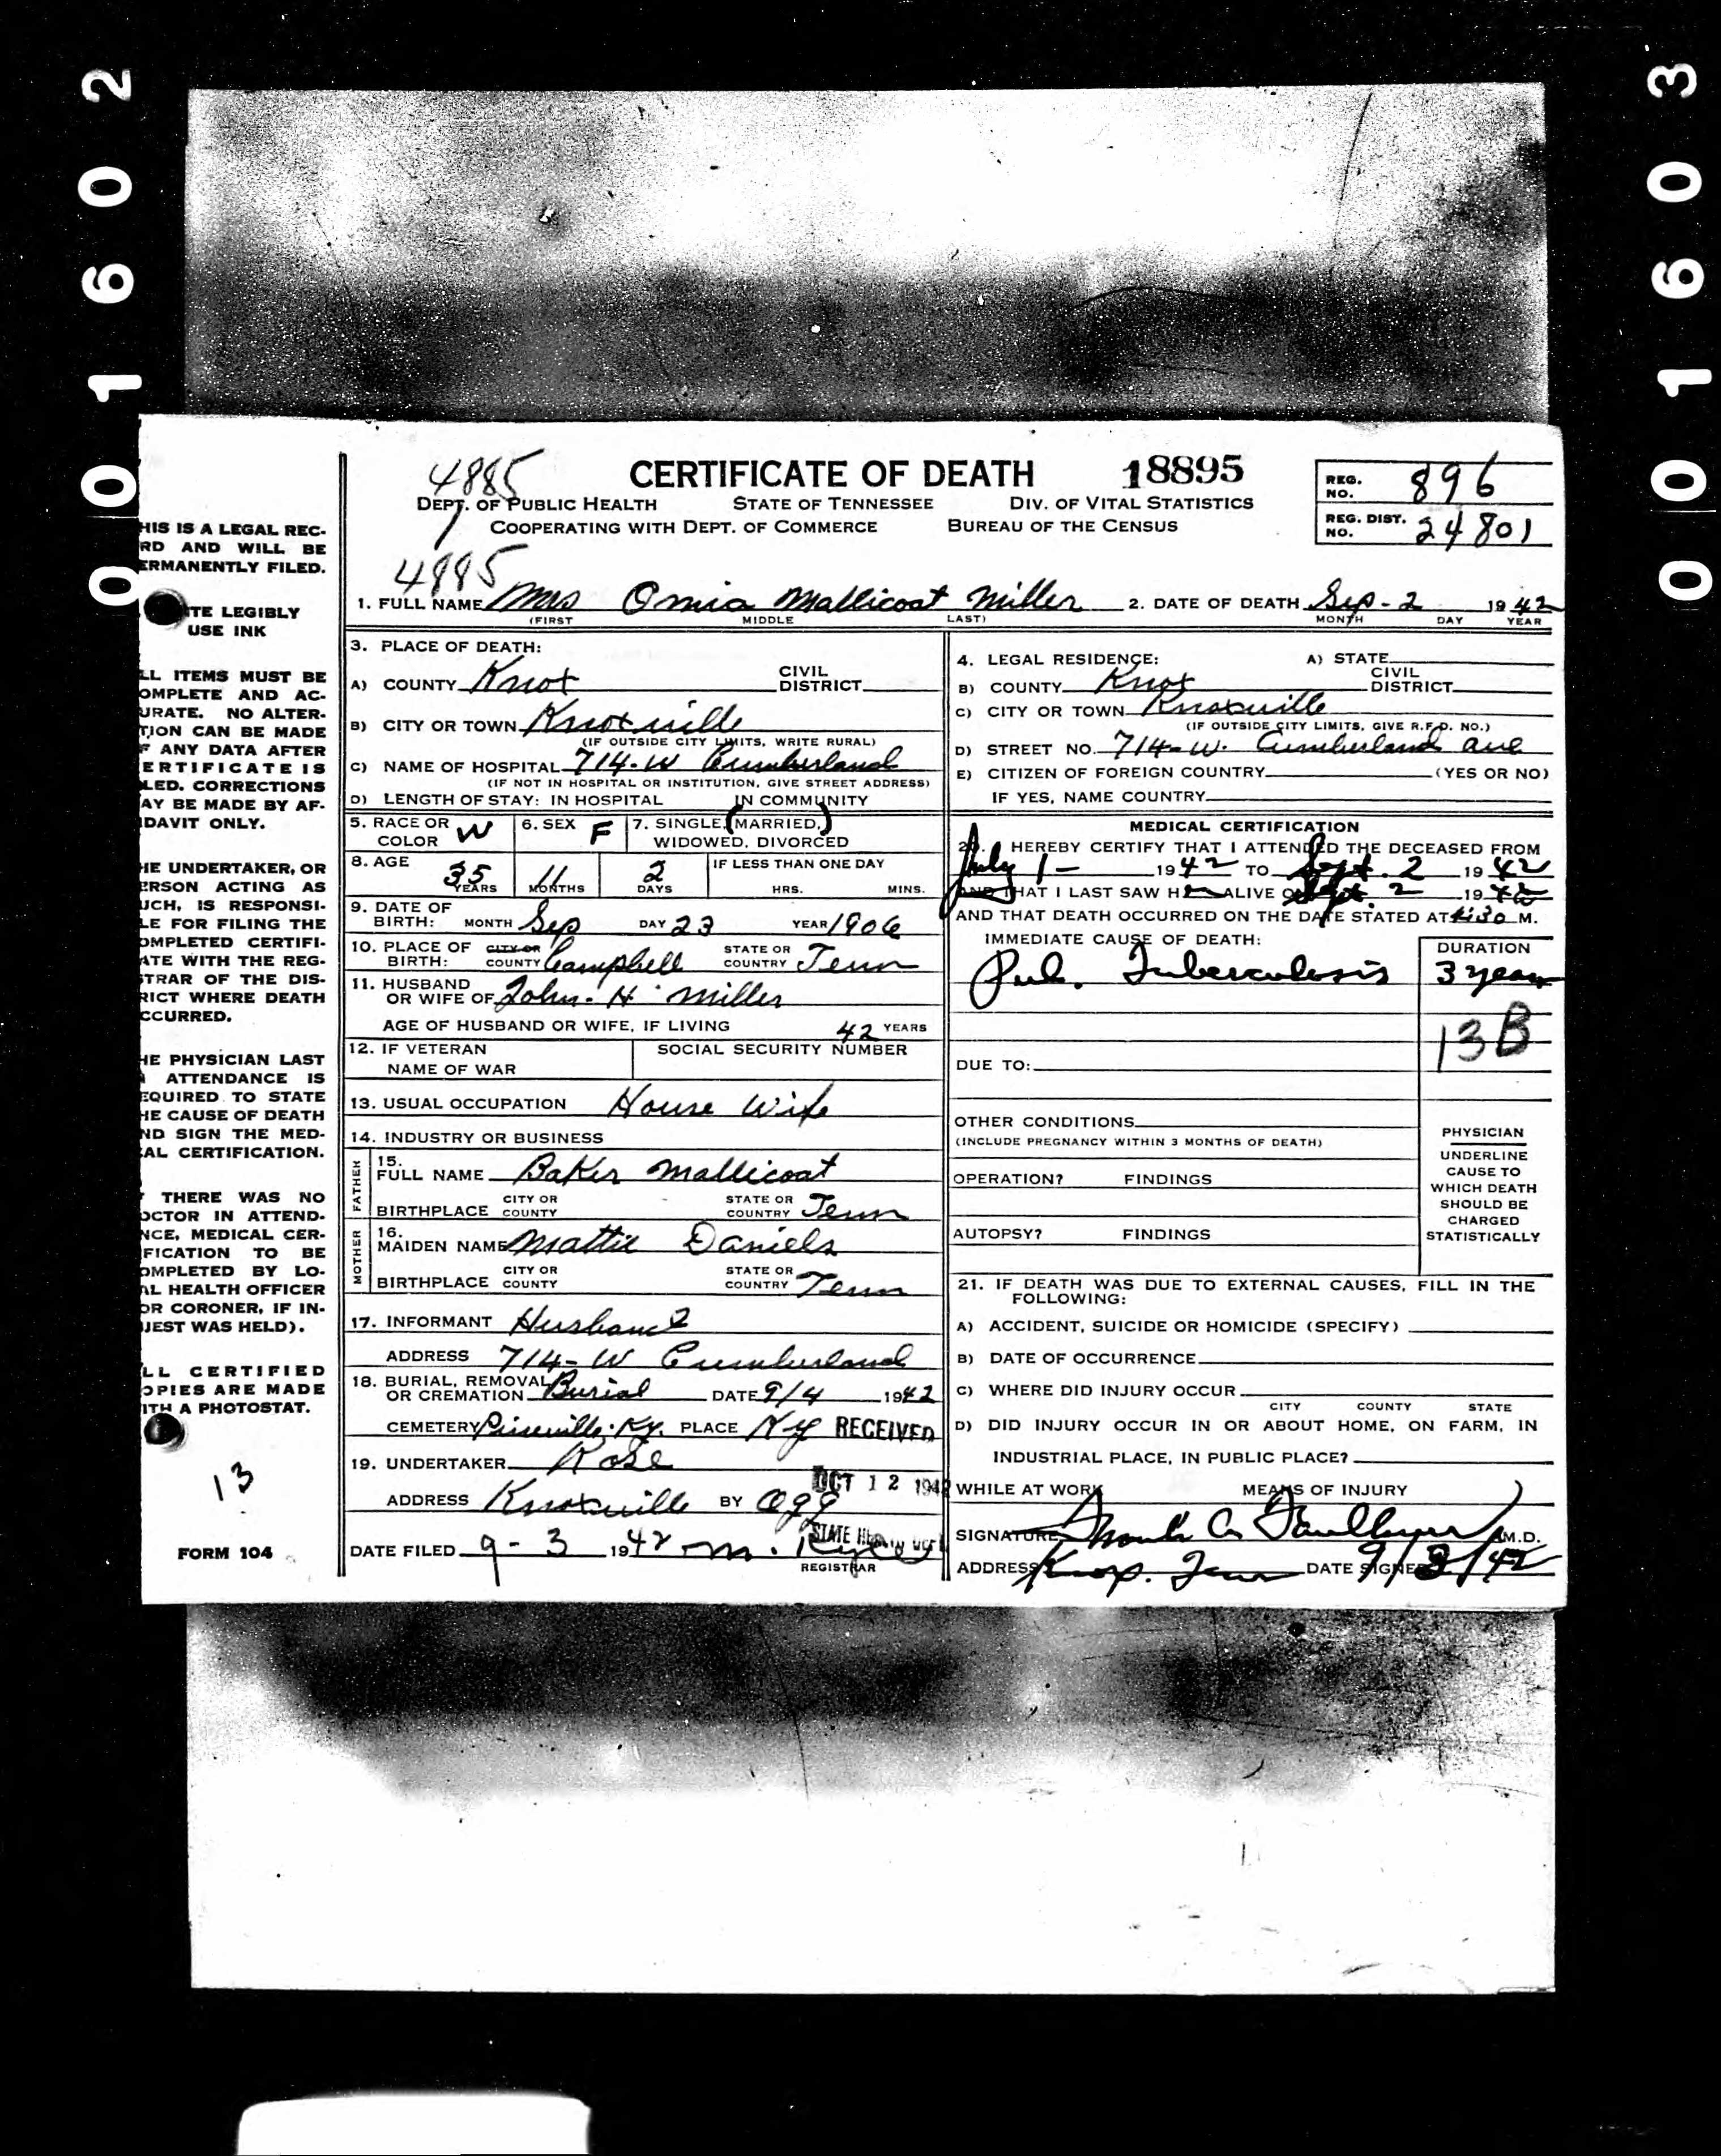 001602
001603
4885
CERTIFICATE OF DEATH 18895
DEPT. OF PUBLIC HEALTH STATE OF TENNESSEE DIV. OF VITAL STATISTICS
COOPERATING WITH DEPT. OF COMMERCE BUREAU OF THE CENSUS
REG. NO. 896
REG. DIST. NO. 24801
4885
1. FULL NAME Mrs Omia Mallicoat Miller 2. DATE OF DEATH Sep-2 1942
(FIRST MIDDLE LAST) MONTH DAY YEAR
3. PLACE OF DEATH:
A) COUNTY Knox CIVIL DISTRICT
B) CITY OR TOWN Knoxville
(IF OUTSIDE CITY LIMITS, WRITE RURAL)
C) NAME OF HOSPITAL 714-W Cumberland
(IF NOT IN HOSPITAL OR INSTITUTION, GIVE STREET ADDRESS)
D) LENGTH OF STAY: IN HOSPITAL IN COMMUNITY
4. LEGAL RESIDENCE: A) STATE
B) COUNTY Knox CIVIL DISTRICT
C) CITY OR TOWN Knoxville
(IF OUTSIDE CITY LIMITS, GIVE R.F.D. NO.)
D) STREET NO. 714-W. Cumberland ave
E) CITIZEN OF FOREIGN COUNTRY (YES OR NO)
IF YES, NAME COUNTRY
5. RACE OR COLOR W 6. SEX F 7. SINGLE, (MARRIED,) WIDOWED, DIVORCED
8. AGE 35 YEARS 11 MONTHS 2 DAYS IF LESS THAN ONE DAY HRS. MINS.
9. DATE OF BIRTH: MONTH Sep DAY 23 YEAR 1906
10. PLACE OF BIRTH: CITY OR COUNTY Campbell STATE OR COUNTRY Tenn
11. HUSBAND OR WIFE OF John. H. Miller
AGE OF HUSBAND OR WIFE, IF LIVING 42 YEARS
12. IF VETERAN NAME OF WAR SOCIAL SECURITY NUMBER
13. USUAL OCCUPATION House Wife
14. INDUSTRY OR BUSINESS
FATHER
15. FULL NAME Baker Mallicoat
BIRTHPLACE CITY OR COUNTY STATE OR COUNTRY Tenn
MOTHER
16. MAIDEN NAME Mattie Daniels
BIRTHPLACE CITY OR COUNTY STATE OR COUNTRY Tenn
17. INFORMANT Husband
ADDRESS 714-W Cumberland
18. BURIAL, REMOVAL OR CREMATION Burial DATE 9/4 1942
CEMETERY Pineville, Ky. PLACE Ky RECEIVED
19. UNDERTAKER Rose
OCT 12 1942
ADDRESS Knoxville BY Ogg
STATE
DATE FILED 9-3 1942 M.
REGISTRAR
MEDICAL CERTIFICATION
20. I HEREBY CERTIFY THAT I ATTENDED THE DECEASED FROM
July 1- 1942 TO Sept. 2 1942
AND THAT I LAST SAW HER ALIVE ON Sept. 2 1942
AND THAT DEATH OCCURRED ON THE DATE STATED AT 4:30 M.
IMMEDIATE CAUSE OF DEATH: DURATION
Pul. Tuberculosis 3 years
13B
DUE TO:
OTHER CONDITIONS
(INCLUDE PREGNANCY WITHIN 3 MONTHS OF DEATH)
OPERATION? FINDINGS
AUTOPSY? FINDINGS
PHYSICIAN
UNDERLINE
CAUSE TO
WHICH DEATH
SHOULD BE
CHARGED
STATISTICALLY
21. IF DEATH WAS DUE TO EXTERNAL CAUSES, FILL IN THE
FOLLOWING:
A) ACCIDENT, SUICIDE OR HOMICIDE (SPECIFY)
B) DATE OF OCCURRENCE
C) WHERE DID INJURY OCCUR
CITY COUNTY STATE
D) DID INJURY OCCUR IN OR ABOUT HOME, ON FARM, IN
INDUSTRIAL PLACE, IN PUBLIC PLACE?
WHILE AT WORK MEANS OF INJURY
SIGNATURE M.D.
ADDRESS Knox. Tenn DATE SIGNED 9/2/42
HIS IS A LEGAL REC-
RD AND WILL BE
ERMANENTLY FILED.
TE LEGIBLY
USE INK
LL ITEMS MUST BE
OMPLETE AND AC-
URATE. NO ALTER-
TION CAN BE MADE
F ANY DATA AFTER
ERTIFICATE IS
LED. CORRECTIONS
AY BE MADE BY AF-
IDAVIT ONLY.
HE UNDERTAKER, OR
ERSON ACTING AS
UCH, IS RESPONSI-
LE FOR FILING THE
OMPLETED CERTIFI-
ATE WITH THE REG-
STRAR OF THE DIS-
RICT WHERE DEATH
CCURRED.
HE PHYSICIAN LAST
ATTENDANCE IS
EQUIRED TO STATE
HE CAUSE OF DEATH
ND SIGN THE MED-
AL CERTIFICATION.
THERE WAS NO
OCTOR IN ATTEND-
NCE, MEDICAL CER-
FICATION TO BE
OMPLETED BY LO-
AL HEALTH OFFICER
OR CORONER, IF IN-
UEST WAS HELD).
LL CERTIFIED
OPIES ARE MADE
ITH A PHOTOSTAT.
13
FORM 104